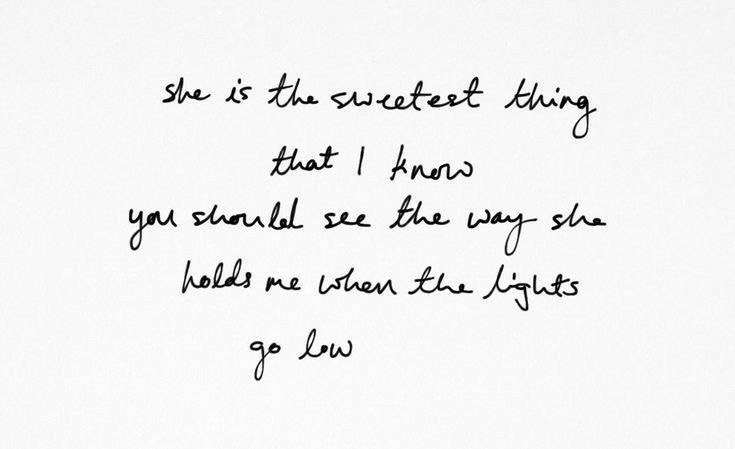 she is the sweetest thing
that I know
you should see the way she
holds me when the lights
go low